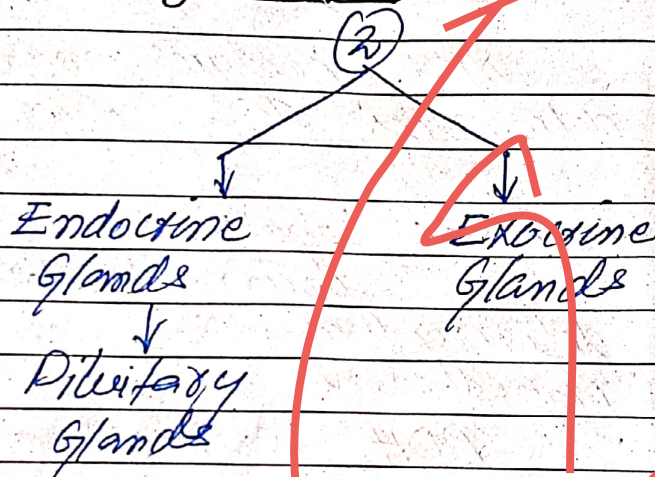 2
Endocrine
Glands
Exocrine
Glands
Pituitary
Glands